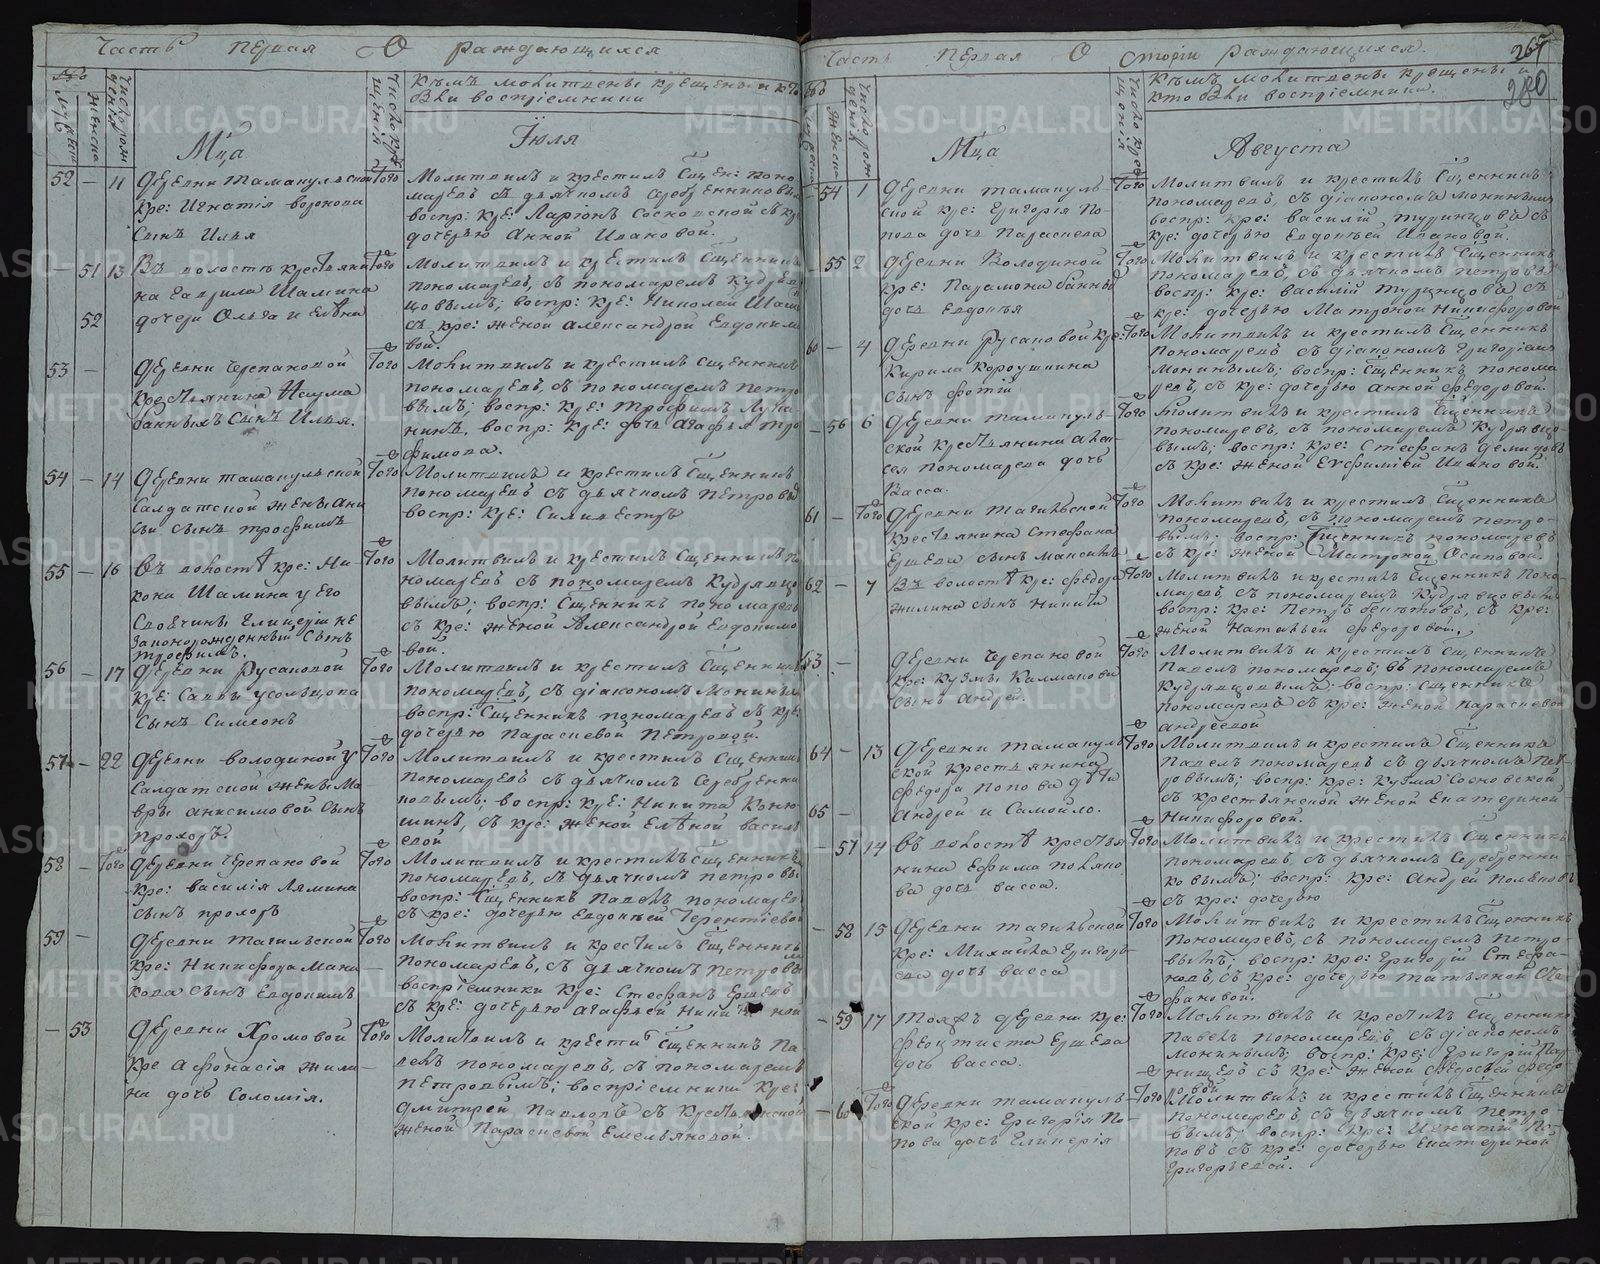 Часть первая О раждающихся
Мца Iюля
52 — 11 Деревни Таманульской
кре: Игнатiя воронова
Сынъ Илья
Того
Молитвилъ и крестилъ Сщен: поно
маревъ съ дьячкомъ Серебренниковы
воспр: кре: Ларiонъ Сосновской съ кре
дочерью Анной Ивановой.
— 51 13 Въ волостѣ крестьяни
на Гаврила Шамина
52 дочери Ольга и Елѣна
Того
Молитвилъ и крестилъ Сщенникъ
пономаревъ, съ пономаремъ Кудряв
цовымъ; воспр: кре: Николай Шами
съ кре: женой александрой Евдоким
вой.
53 — Деревни Черепановой
Крестьянина Наума
банныхъ Сынъ Илья.
Того
Молитвилъ и крестилъ сщенникъ
пономаревъ, съ пономаремъ петро
вымъ; воспр: кре: трофимъ Лука
нинъ, воспр: кре: дочь агафья тро
фимова.
54 — 14 Деревни таманульской
Салдатской жены Анн
сынъ трофимъ
Того
Молитвилъ и крестилъ Сщенникъ
пономаревъ съ дьячкомъ петровы
воспр: кре: Силивестръ
55 — 16 Въ волостѣ кре: Ни
кона Шамина у его
незаконорожденный Сынъ
трофимъ.
Того
Молитвилъ и крестилъ Сщенникъ по
номаревъ съ пономаремъ Кудрявцо
вымъ; воспр: Сщенникъ пономаревъ
съ кре: женой Александрой Евдокимо
вой.
56 — 17 Деревни Русановой
кре: Савы усольцова
Сынъ Симеонъ
Того
Молитвилъ и крестилъ Сщенникъ
пономаревъ, съ дiакономъ Мокины
воспр: Сщенникъ пономаревъ съ кре:
дочерью Параскевой Петровой.
57 — 22 Деревни володиной у
Салдатской жены Ма
вры анисимовой Сынъ
прохоръ
Того
Молитвилъ и крестилъ Сщенник
пономаревъ съ дьячкомъ Серебренни
ковымъ; воспр: кре: Никита Коню
шинъ съ кре: женой Елѣной василь
евой
58 — Того Деревни Черепановой
кре: василiя Лямина
сынъ прохоръ
Того
Молитвилъ и крестилъ Сщенникъ
пономаревъ, съ дьячкомъ петровы
воспр: Сщенникъ Павелъ пономаревъ
съ кре: дочерью Евдокьей Терентiевой
59 — Деревни тагильской
кре: Никифора Мака
рова сынъ Евдокимъ
Того
Молитвилъ и крестилъ Сщенникъ
пономаревъ, съ дьячкомъ петровы
воспрiемники кре: Стефанъ Ершевъ
съ кре: дочерью агафьей
— 53 Деревни Хромовой
кре афонасiя жили
на дочь Соломiя.
Того
Молитвилъ и крестилъ Сщенникъ Па
велъ пономаревъ, съ пономаремъ
петровымъ; воспрiемники кре:
дмитрей Павловъ съ крестьянской
женой Параскевой Емельяновой.
Часть Первая О сторiи раждающихся.
267
280
Мца Августа
— 54 1 Деревни тамануль
ской кре: Григорiя По
пова дочь Параскева
Того
Молитвилъ и крестилъ Сщенникъ
пономаревъ, съ дiакономъ мокинымъ
воспр: кре: василiй турицовъ съ
кре: дочерью Евдокьей Ивановой.
— 55 2 Деревни Володиной
кре: Парамона банных
дочь Евдокья
Того
Молитвилъ и крестилъ Сщенникъ
пономаревъ, съ дьячкомъ петровы
воспр: кре: василiй турицовъ съ
кре: дочерью Матроной Никифоровой
60 — 4 Деревни Русановой кре:
Кирила Короушкина
сынъ фотiй
Того
Молитвилъ и крестилъ Сщенникъ
Пономаревъ съ дiакономъ Григорiемъ
Мокинымъ; воспр: Сщенникъ понома
ревъ съ кре: дочерью анной федоровой.
— 56 6 Деревни тамануль
ской крестьянина алек
сея пономарева дочь
Васса.
Того
Молитвилъ и крестилъ Сщенникъ
пономаревъ, съ пономаремъ Кудрявцо
вымъ; воспр: кре: Стефанъ демидовъ
съ кре: женой Ефимiей Ивановой.
61 — Того Деревни Тагильской
крестьянина Стефана
Ершева сынъ Максимъ
Того
Молитвилъ и крестилъ Сщенникъ
пономаревъ, съ пономаремъ петро
вымъ; воспр: Сщенникъ пономаревъ
съ кре: женой Матроной Осиповой
62 — 7 Въ волостѣ кре: федора
жилина сынъ Никита
Того
Молитвилъ и крестилъ Сщенникъ Поно
маревъ, съ пономаремъ Кудрявцовымъ
воспр: кре: Петръ съ кре:
женой Натальей федоровой.
63 — Деревни Черепановой
кре: Кузмы Калмакова
сынъ Андрей.
Того
Молитвилъ и крестилъ Сщенникъ
Павелъ пономаревъ; въ пономаремъ
Кудрявцовымъ воспр: Сщенникъ
пономаревъ съ кре: женой Параскевой
андреевой
64 — 13 Деревни тамануль
ской крестьянина
федора Попова дѣти
65 — Андрей и Самойло.
Того
Молитвилъ и крестилъ Сщенникъ
Павелъ пономаревъ съ дьячкомъ Пет
ровымъ; воспр: кре: Кузма Сосновской
съ крестьянской женой Екатериной
Никифоровой.
— 57 14 Въ волостѣ крестья
нина Ефима поляко
ва дочь васса.
Того
Молитвилъ и крестилъ Сщенникъ
пономаревъ, съ дьячкомъ Серебренни
ковымъ; воспр: кре: Андрей Поляковъ
съ кре: дочерью
— 58 15 Деревни тагильской
кре: Михайла Григорь
ева дочь васса
Того
Молитвилъ и крестилъ Сщенникъ
Пономаревъ, съ пономаремъ петро
вымъ; воспр: кре: Григорiй Стефа
новъ, съ кре: дочерью татьяной Сте
фановой.
— 59 17 Тояжъ деревни кре:
феоктиста Ершева
дочь васса.
Того
Молитвилъ и крестилъ Сщенникъ
Павелъ пономаревъ, съ дiакономъ
мокинымъ; воспр: кре: Григорiй
съ кре: женой федосьей федо
ровой
— 60 Того Деревни тамануль
ской кре: Григорiя По
пова дочь Гликерiя
Того
Молитвилъ и крестилъ Сщенникъ
пономаревъ съ дьячкомъ петро
вымъ; воспр: кре: Игнатiй По
повъ съ кре: дочерью Екатериной
Григорьевой.